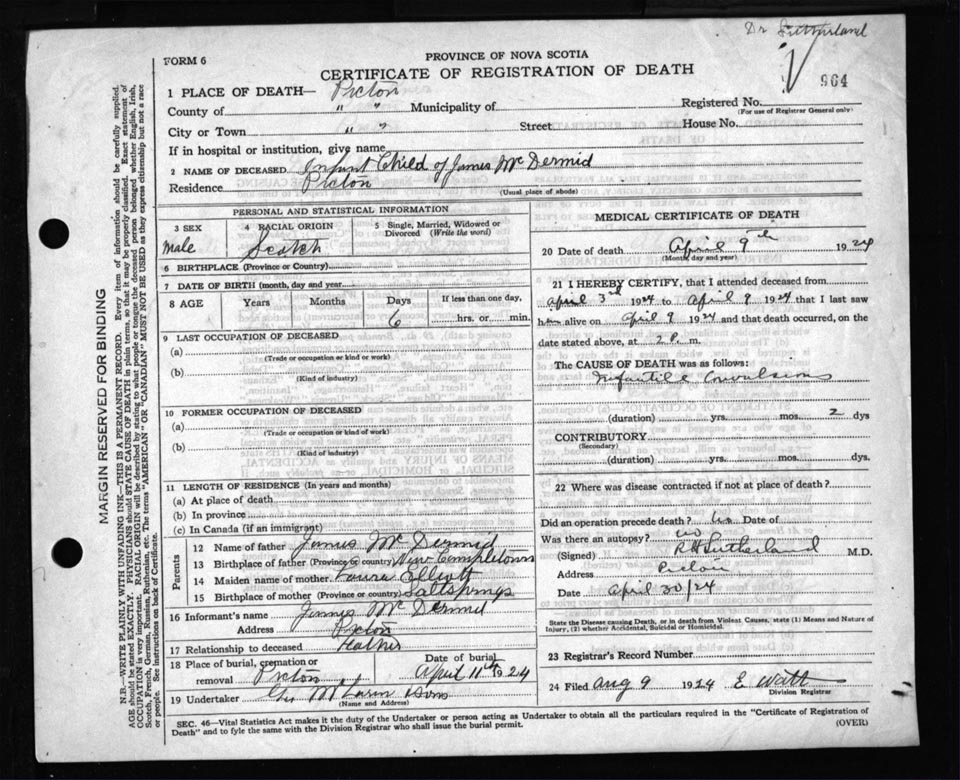 Dr Sutherland
FORM 6
PROVINCE OF NOVA SCOTIA
CERTIFICATE OF REGISTRATION OF DEATH
964
1 PLACE OF DEATH— Pictou
County of " " Municipality of
Registered No.
(For use of Registrar General only)
City or Town " " Street House No.
If in hospital or institution, give name
2 NAME OF DECEASED Infant Child of James McDermid
Residence Pictou
(Usual place of abode)
PERSONAL AND STATISTICAL INFORMATION
3 SEX 4 RACIAL ORIGIN 5 Single, Married, Widowed or Divorced (Write the word)
Male Scotch
6 BIRTHPLACE (Province or Country)
7 DATE OF BIRTH (month, day and year)
8 AGE Years Months Days If less than one day,
6 hrs. or min.
9 LAST OCCUPATION OF DECEASED
(a)
(Trade or occupation or kind or work)
(b)
(Kind of industry)
10 FORMER OCCUPATION OF DECEASED
(a)
(Trade or occupation or kind of work)
(b)
(Kind of industry)
11 LENGTH OF RESIDENCE (In years and months)
(a) At place of death
(b) In province
(c) In Canada (if an immigrant)
Parents
12 Name of father James McDermid
13 Birthplace of father (Province or country)
14 Maiden name of mother Laura Elliott
15 Birthplace of mother (Province or Country) Saltsprings
16 Informant's name James McDermid
Address Pictou
17 Relationship to deceased Father
18 Place of burial, cremation or removal Pictou
Date of burial April 11th 1924
19 Undertaker
(Name and Address)
MEDICAL CERTIFICATE OF DEATH
20 Date of death April 9th 1924
(Month, day and year)
21 I HEREBY CERTIFY, that I attended deceased from
April 3rd 1924 to April 9 1924 that I last saw
him alive on April 9 1924 and that death occurred, on the
date stated above, at 2 P. m.
The CAUSE OF DEATH was as follows:
Infantile Convulsions
(duration) yrs. mos. 2 dys
CONTRIBUTORY
(Secondary)
(duration) yrs. mos. dys.
22 Where was disease contracted if not at place of death?
Did an operation precede death? No Date of
Was there an autopsy? No
(Signed) R H Sutherland M.D.
Address Pictou
Date April 30/24
State the Disease causing Death, or in death from Violent Causes, state (1) Means and Nature of
Injury, (2) whether Accidental, Suicidal or Homicidal.
23 Registrar's Record Number
24 Filed Aug 9 1924 E Watt
Division Registrar
SEC. 46—Vital Statistics Act makes it the duty of the Undertaker or person acting as Undertaker to obtain all the particulars required in the "Certificate of Registration of
Death" and to fyle the same with the Division Registrar who shall issue the burial permit.
(OVER)
MARGIN RESERVED FOR BINDING
N.B.—WRITE PLAINLY WITH UNFADING INK—THIS IS A PERMANENT RECORD. Every item of information should be carefully supplied.
AGE should be stated EXACTLY. PHYSICIANS should STATE CAUSE OF DEATH in plain terms, so that it may be properly classified. Exact statement of
OCCUPATION is very important. RACIAL ORIGIN will be described by stating to what people or tongue the deceased person belonged whether English, Irish,
Scotch, French, German, Russian, Ruthenian, etc. The terms "AMERICAN" OR "CANADIAN" MUST NOT BE USED as they express citizenship but not a race
or people. See instructions on back of Certificate.